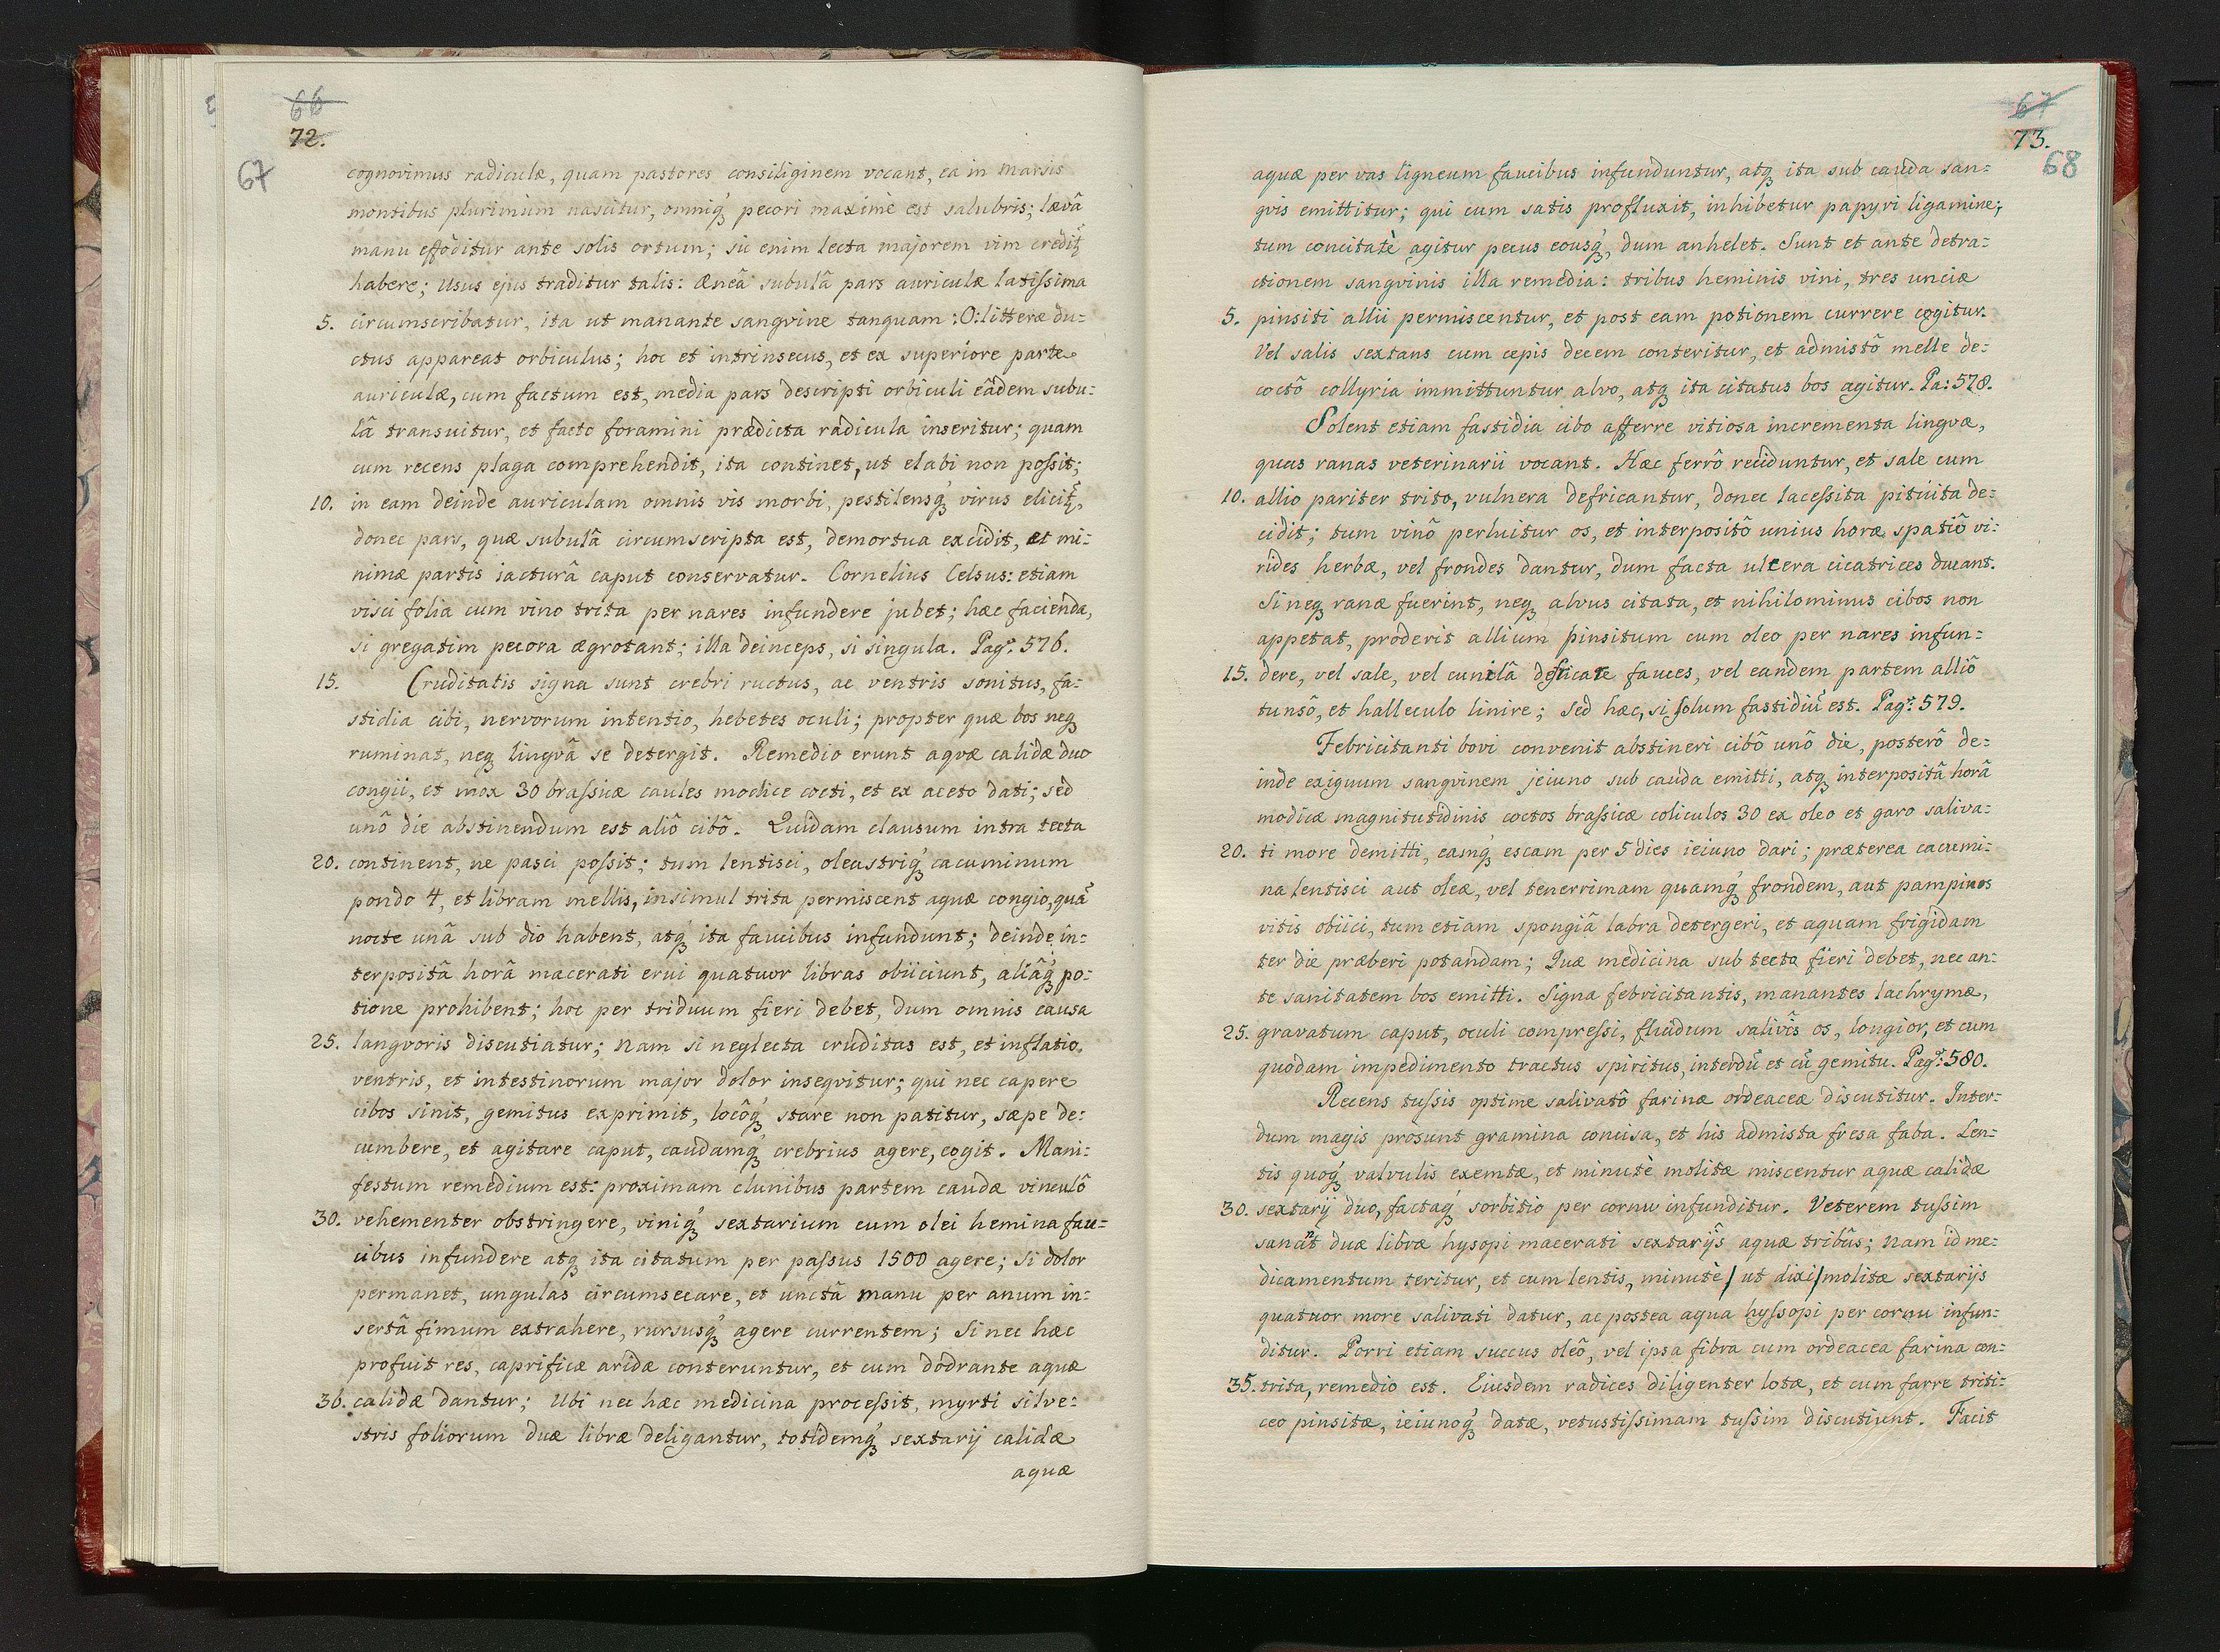 66
72.
67
cognovimus radiculæ, quam pastores consiliginem vocant, ea in Marsis
montibus plurimùm nascitur, omniq́ꝫ pecori maximè est salubris; lævâ
manu effŏditur ante solis ortum; sic enim lecta majorem vim credit̃
habere; Usus ejus traditur talis: Æneâ subulâ pars auriculæ latiſsima
5. circumscribatur, ita ut manante sangvine tanquam :O: litteræ du=
ctus appareat orbiculus; hoc et intrinsecus, et ex superiore parte
auriculæ, cum factum est, media pars descripti orbiculi eâdem subu=
lâ transuitur, et facto foramini prædicta radicula inseritur; quam
cum recens plaga comprehendit, ita continet, ut elabi non poſsit;
10. in eam deinde auriculam omnis vis morbi, pestilensq́ꝫ virus elicit̃,
donec pars, quæ subulâ circumscripta est, demortua excidit, et mi=
nimæ partis iacturâ caput conservatur. Cornelius Celsus: etiam
visci folia cum vino trita per nares infundere jubet; hæc facienda,
si gregatim pecora ægrotant; illa deinceps, si singula. Pag: 576.
15. Cruditatis signa sunt crebri ructus, ac ventris sonitus, fa=
stidia cibi, nervorum intentio, hebetes oculi; propter quæ bos neqꝫ
ruminat, neqꝫ lingvâ se detergit. Remedio erunt aqvæ calidæ duo
congii, et mox 30 braſsicæ caules modice cocti, et ex aceto dati; sed
unô die abstinendum est aliô cibô. Quidam clausum intra tecta
20. continent, ne pasci poſsit; tum lentisci, oleastriq́ꝫ cacuminum
pondo 4, et libram mellis, insimul trita permiscent aquæ congio, quã
nocte unâ sub dio habent, atq́ꝫ ita faucibus infundunt; deinde in=
terpositâ horâ macerati ervi quatuor libras obiiciunt, aliâq́ꝫ po=
tione prohibent; hoc per triduum fieri debet, dum omnis causa
25. langvoris discutiatur; nam si neglecta cruditas est, et inflatio
ventris, et intestinorum major dolor inseqvitur; qui nec capere
cibos sinit, gemitus exprimit, locôq́ꝫ stare non patitur, sæpe de=
cumbere, et agitare caput, caudamq́ꝫ crebrius agere, cogit. Mani=
festum remedium est: proximam clunibus partem caudæ vinculô
30. vehementer obstringere, viniq́ꝫ sextarium cum olei hemina fau=
cibus infundere atqꝫ ita citatum per paſsus 1500 agere; si dolor
permanet, ungulas circumsecare, et unctâ manu per anum in=
sertâ fimum extrahere, rursusq́ꝫ agere currentem; Si nec hæc
profuit res, caprificæ aridæ conteruntur, et cum dodrante aquæ
36. calidæ dantur; Ubi nec hæc medicina proceſsit, myrti silve=
stris foliorum duæ libræ deligantur, totidemq́ꝫ sextarij calidæ
aquæ
67
73.
68
aquæ per vas ligneum faucibus infunduntur, atqꝫ ita sub cauda san=
gvis emittitur; qui cum satis profluxit, inhibetur papyri ligamine;
tum concitatè agitur pecus eousq́ꝫ, dum anhelet. Sunt et ante detra=
ctionem sangvinis illa remedia: tribus heminis vini, tres unciæ
5. pinsiti allii permiscentur, et post eam potionem currere cogitur.
Vel salis sextans cum cepis decem conteritur, et admistô melle de=
coctô collyria immittuntur alvo, atqꝫ ita citatus bos agitur. Pa: 578.
Solent etiam fastidia cibo afferre vitiosa incrementa lingvæ,
quas ranas veterinarii vocant. Hæc ferrô reciduntur, et sale cum
10. allio pariter trito, vulnera defricantur, donec laceſsita pituita de=
cidit; tum vinô perluitur os, et interpositô unius horæ spatiô vi=
rides herbæ, vel frondes dantur, dum facta ulcera cicatrices ducant.
Si neqꝫ ranæ fuerint, neqꝫ alvus citata, et nihilominus cibos non
appetat, proderit allium pinsitum cum oleo per nares infun=
15. dere, vel sale, vel cunilâ defricare fauces, vel eandem partem alliô
tunsô, et halleculo linire; sed hæc, si ſolum fastidiũ est. Pag: 579.
Febricitanti bovi convenit abstineri cibô unô die, posterô de=
inde exiguum sangvinem jeiuno sub cauda emitti, atqꝫ interpositâ horâ
modicæ magnitutidinis coctos braſsicæ coliculos 30 ex oleo et garo saliva=
20. ti more demitti, eamq́ꝫ escam per 5 dies ieiuno dari; præterea cacumi=
na lentisci aut oleæ, vel tenerrimam quamq́ꝫ frondem, aut pampinos
vitis obiici, tum etiam spongiâ labra detergeri, et aquam frigidam
ter die præberi potandam; Quæ medicina sub tecto fieri debet, nec an=
te sanitatem bos emitti. Signa febricitantis, manantes lachrymæ,
25. gravatum caput, oculi compreſsi, fluidum salivîs os, longior, et cum
quodam impedimento tractus spiritus, interdũ et cũ gemitu. Pag: 580.
Recens tuſsis optime salivatô farinæ ordeaceæ discutitur. Inter=
dum magis prosunt gramina concisa, et his admista fresa faba. Len=
tis quoq́ꝫ valvulis exemtæ, et minutè molitæ miscentur aquæ calidæ
30. sextarij duo, factaq́ꝫ sorbitio per cornu infunditur. Veterem tuſsim
sanant duæ libræ hysopi macerati sextarijs aquæ tribûs; nam id me=
dicamentum teritur, et cum lentis, minutè / ut dixi / molitæ sextarijs
quatuor more salivati datur, ac postea aqua hyſsopi per cornu infun=
ditur. Porri etiam succus oleô, vel ipsa fibra cum ordeacea farina con=
35. trita, remedio est. Eiusdem radices diligenter lotæ, et cum farre triti=
ceo pinsitæ, ieiunoq́ꝫ datæ, vetustiſsimam tuſsim discutiunt. Facit